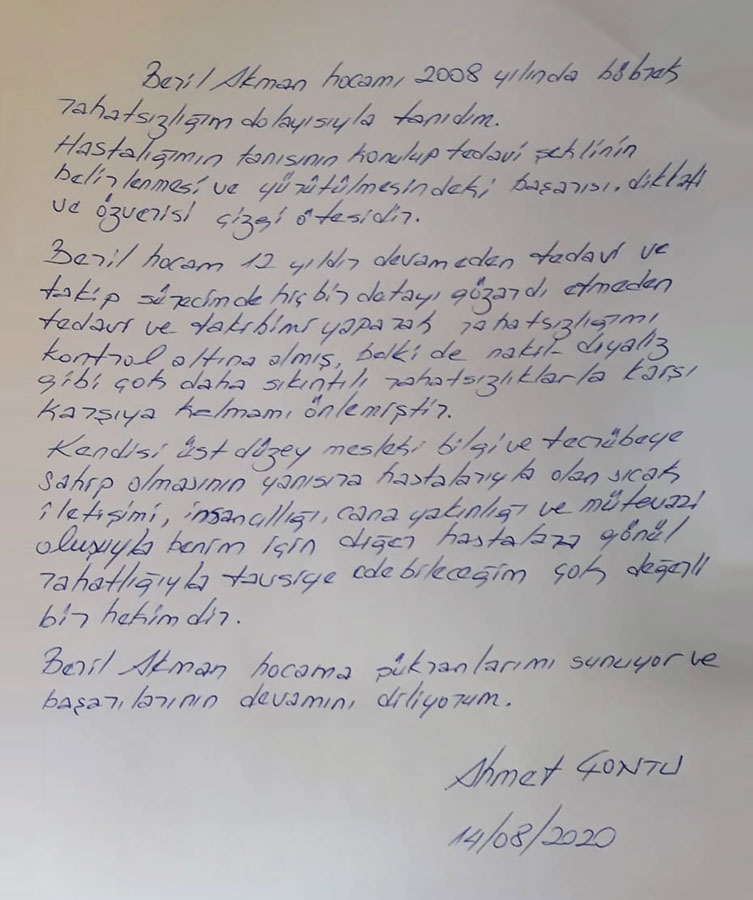 Beril Akman hocamı 2008 yılında böbrek
rahatsızlığım dolayısıyla tanıdım.
Hastalığımın tanısının konulup tedavi şeklinin
belirlenmesi ve yürütülmesindeki başarısı, dikkati
ve özverisi çizgi ötesidir.
Beril hocam 12 yıldır devameden tedavi ve
takip sürecimde hiç bir datayı gözardı etmeden
tedavi ve takibimi yaparak rahatsızlığımı
kontrol altına almış, belki de nakil-diyaliz
gibi çok daha sıkıntılı rahatsızlıklarla karşı
karşıya kalmamı önlemiştir.
Kendisi üst düzey mesleki bilgi ve tecrübeye
sahip olmasının yanısıra hastalarıyla olan sıcak
iletişimi, insancıllığı, cana yakınlığı ve mütevazi
oluşuyla benim için diğer hastalara gönül
rahatlığıyla tavsiye edebileceğim çok değerli
bir hekimdir.
Beril Akman hocama şükranlarımı sunuyor ve
başarılarının devamını diliyorum.
Ahmet
14/08/2020